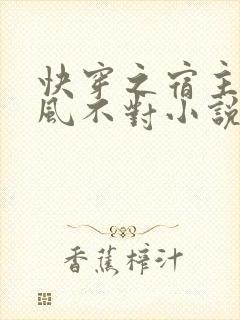 快穿之宿主
風不對小說
香蕉榨汁